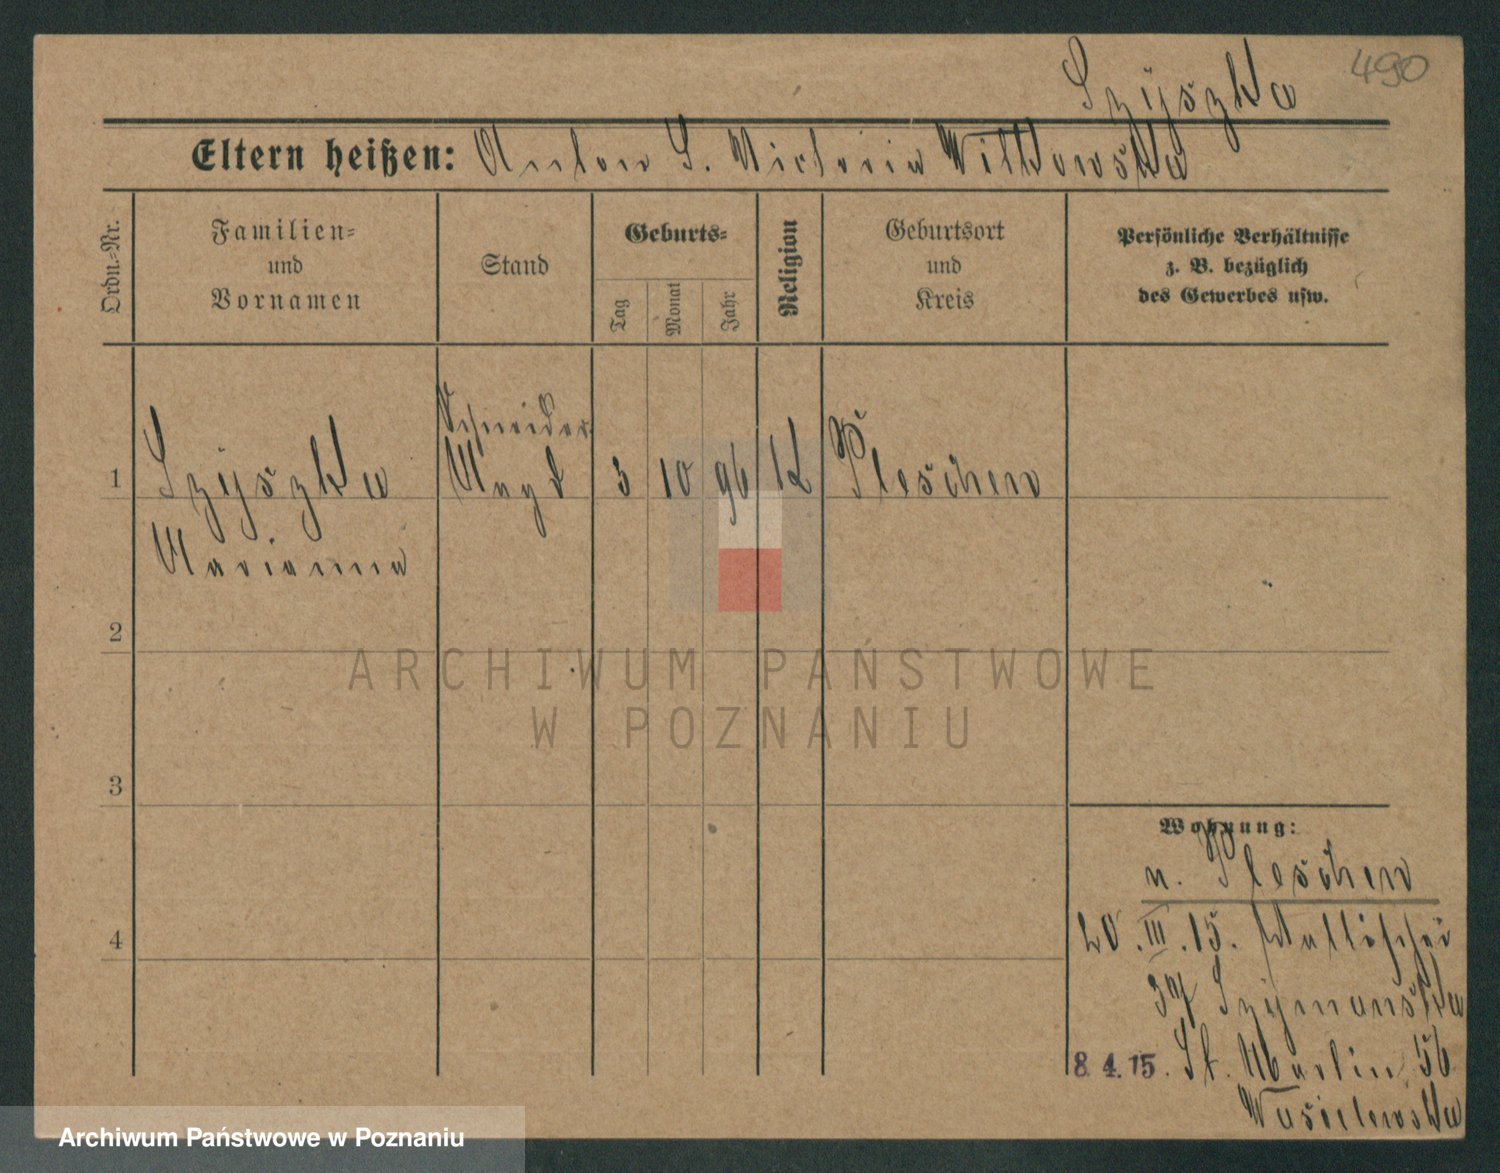 490
Szyszka
Eltern heißen: Anton S. Victoria Wittkowska
Ordn.-Nr.
Familien- und Vornamen
Stand
Geburts-
Tag
Monat
Jahr
Religion
Geburtsort und Kreis
Persönliche Verhältnisse
z. B. bezüglich
des Gewerbes usw.
Schneider
1 Szyszka Magd 3 10 96 K Pleschen
Marianna
2
ARCHIWUM PAŃSTWOWE
W POZNANIU
3
Wohnung:
n. Pleschen
4
20.III.15. Wallischei
37 Szymanska
8.4.15. St. Martin 56
Archiwum Państwowe w Poznaniu